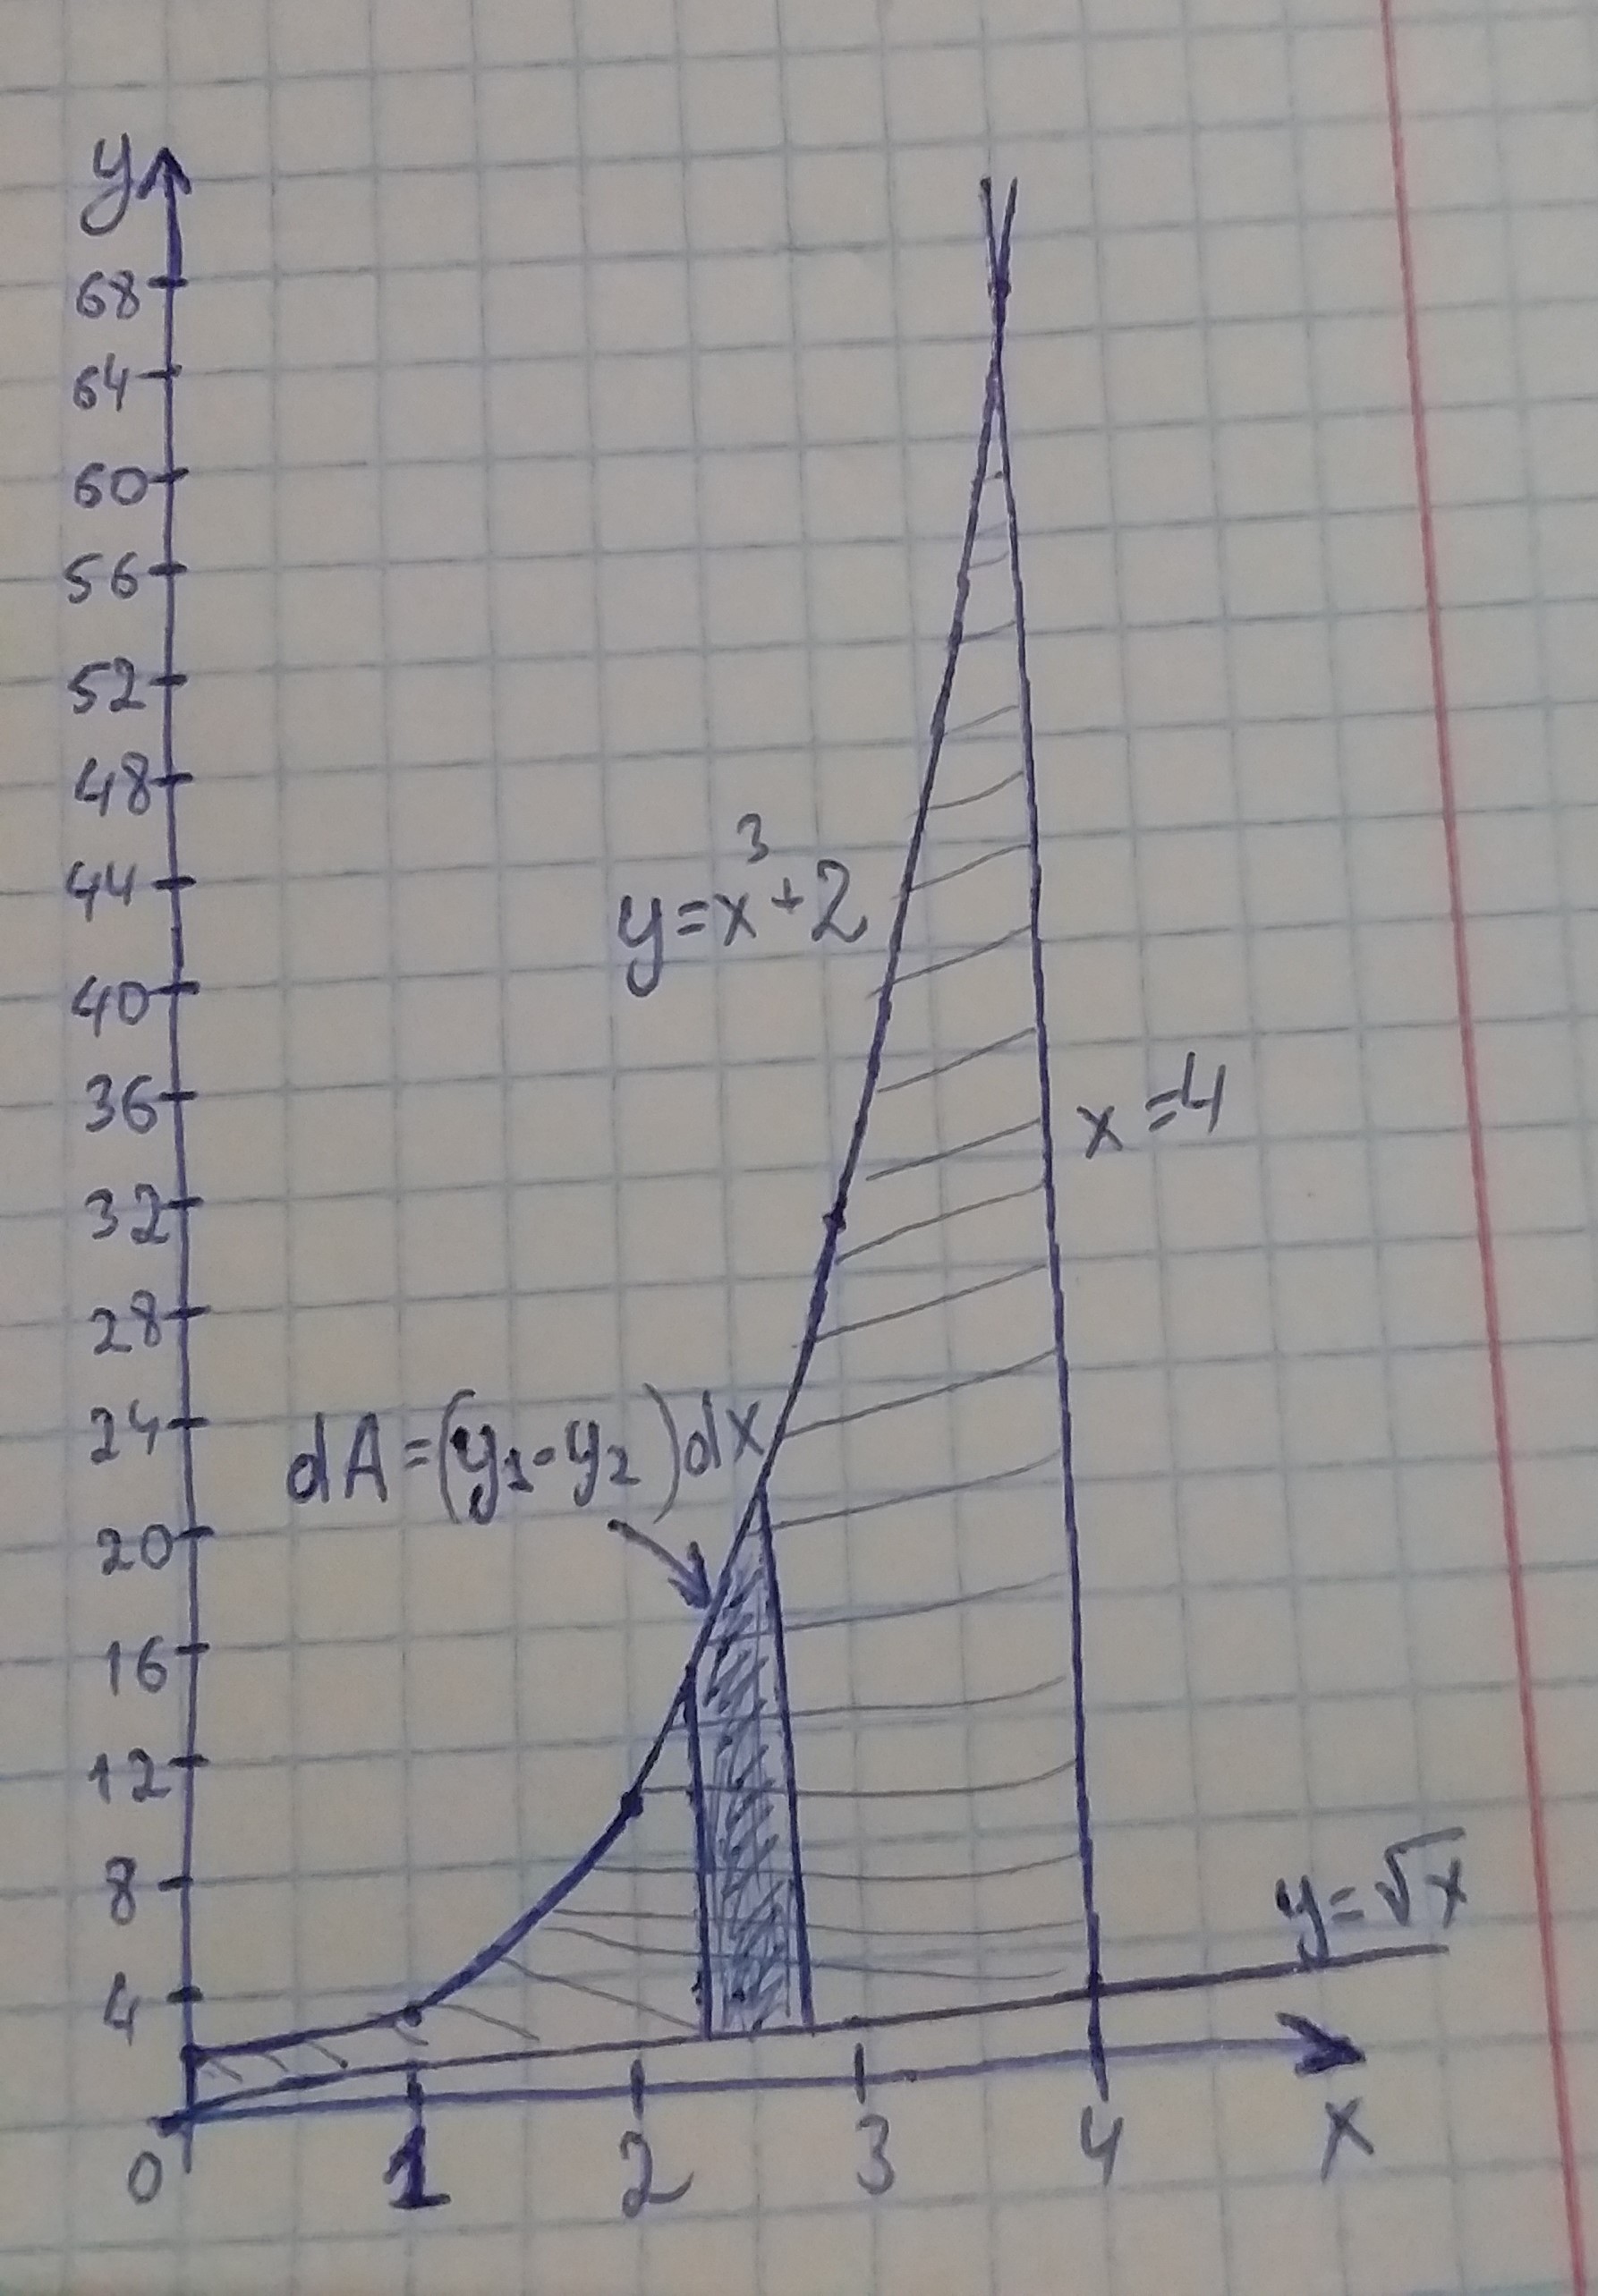 y
68
64
60
56
52
48
y=x³+2
44
40
36
x=4
32
28
24
dA=(y₁-y₂)dx
20
16
12
8
y=√x
4
0 1 2 3 4 x